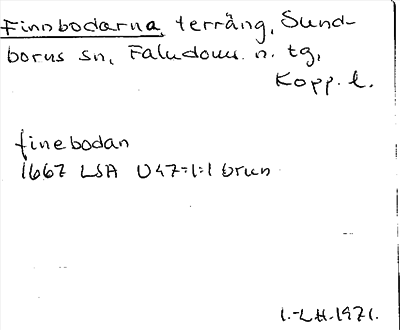 Finnbodarna, terräng, Sund-
borns sn, Faludoms. n. tg,
Kopp. l.
finebodan
1667 LSA U47-1:1 brun
1.-LH.1971.